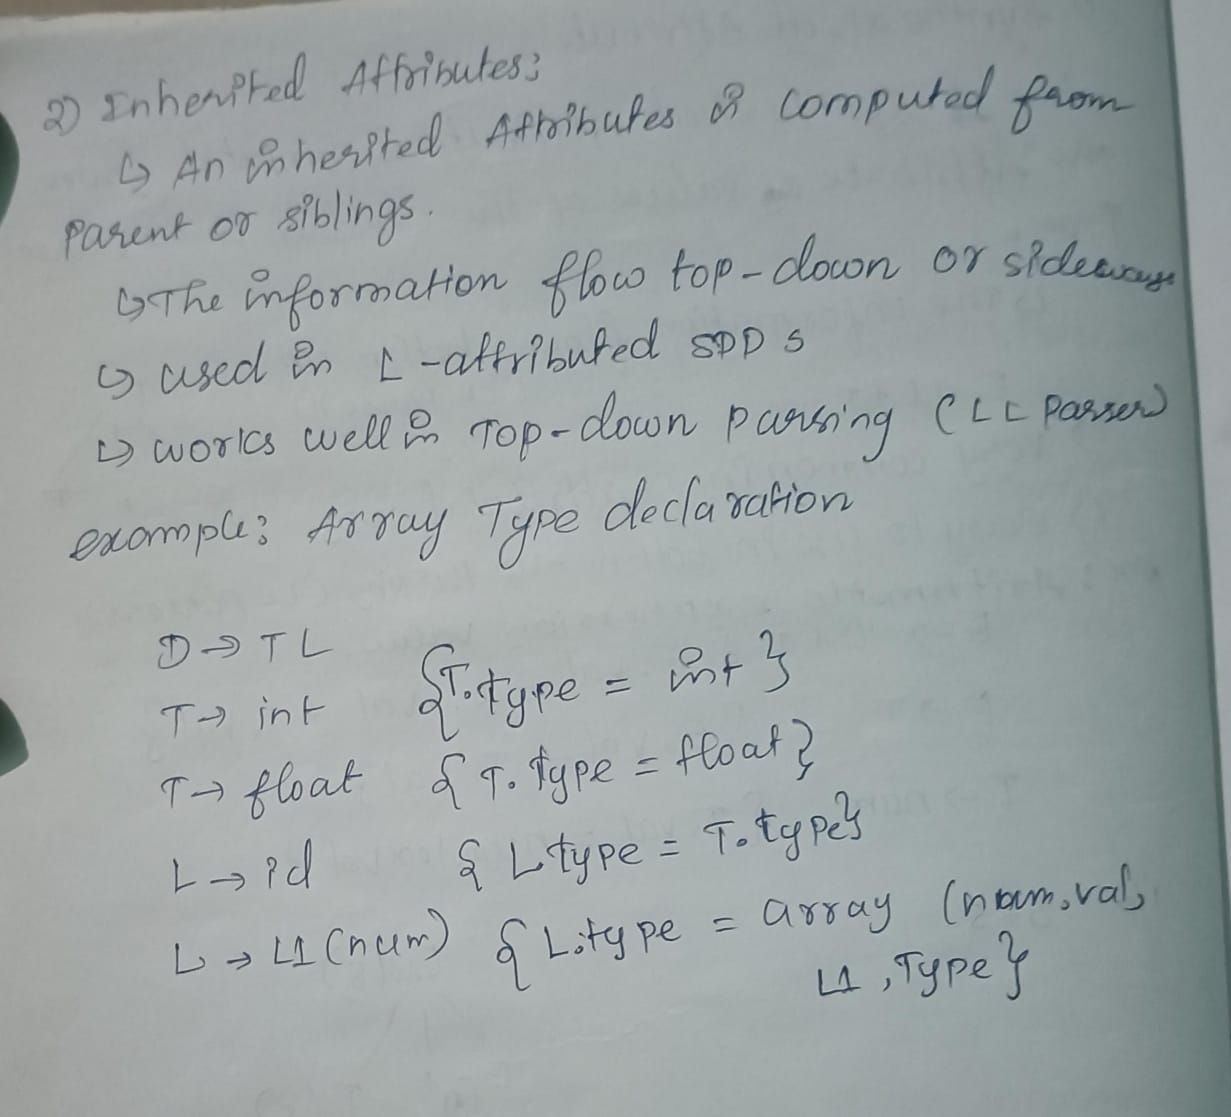 2) Inherited Attributes:
↳ An inherited Attributes is computed from
parent or siblings.
↳ The information flow top-down or sideways
↳ used in L-attributed SDD s
↳ works well in Top-down parsing (LL parser)
example: Array Type declaration
D → T L
T → int {T.type = int}
T → float {T.type = float}
L → id {L type = T.type}
L → L1 (num) {L.type = array (num,val,
L1, Type}